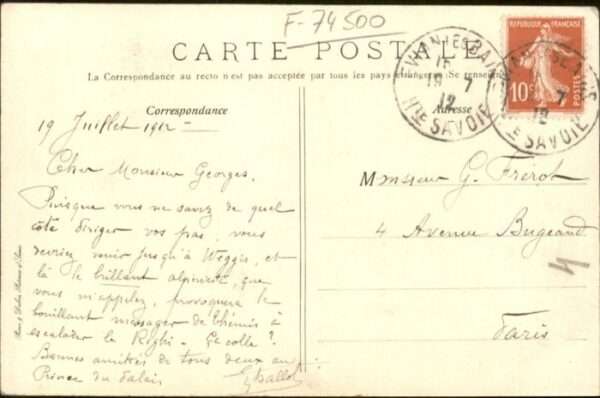 F-74500
CARTE POSTALE
La Correspondance au recto n'est pas acceptée par tous les pays étrangers. Se renseigner
Correspondance
Adresse
EVIAN LES BAINS
15
19 7
12
HTE SAVOIE
REPUBLIQUE FRANÇAISE
10c
POSTES
19 Juillet 1912 =
Cher Monsieur Georges,
Puisque vous ne savez de quel
côté diriger vos pas, vous
devriez venir jusqu'à Weggis, et
là le brillant alpiniste, que
vous m'appelez, provoquera le
bouillant messager de Thémis à
escalader le Righi - Ça colle ?
Bonnes amitiés de tous deux au
Prince du Palais
Monsieur G. Frérot
4 Avenue Bugeaud
Paris
4